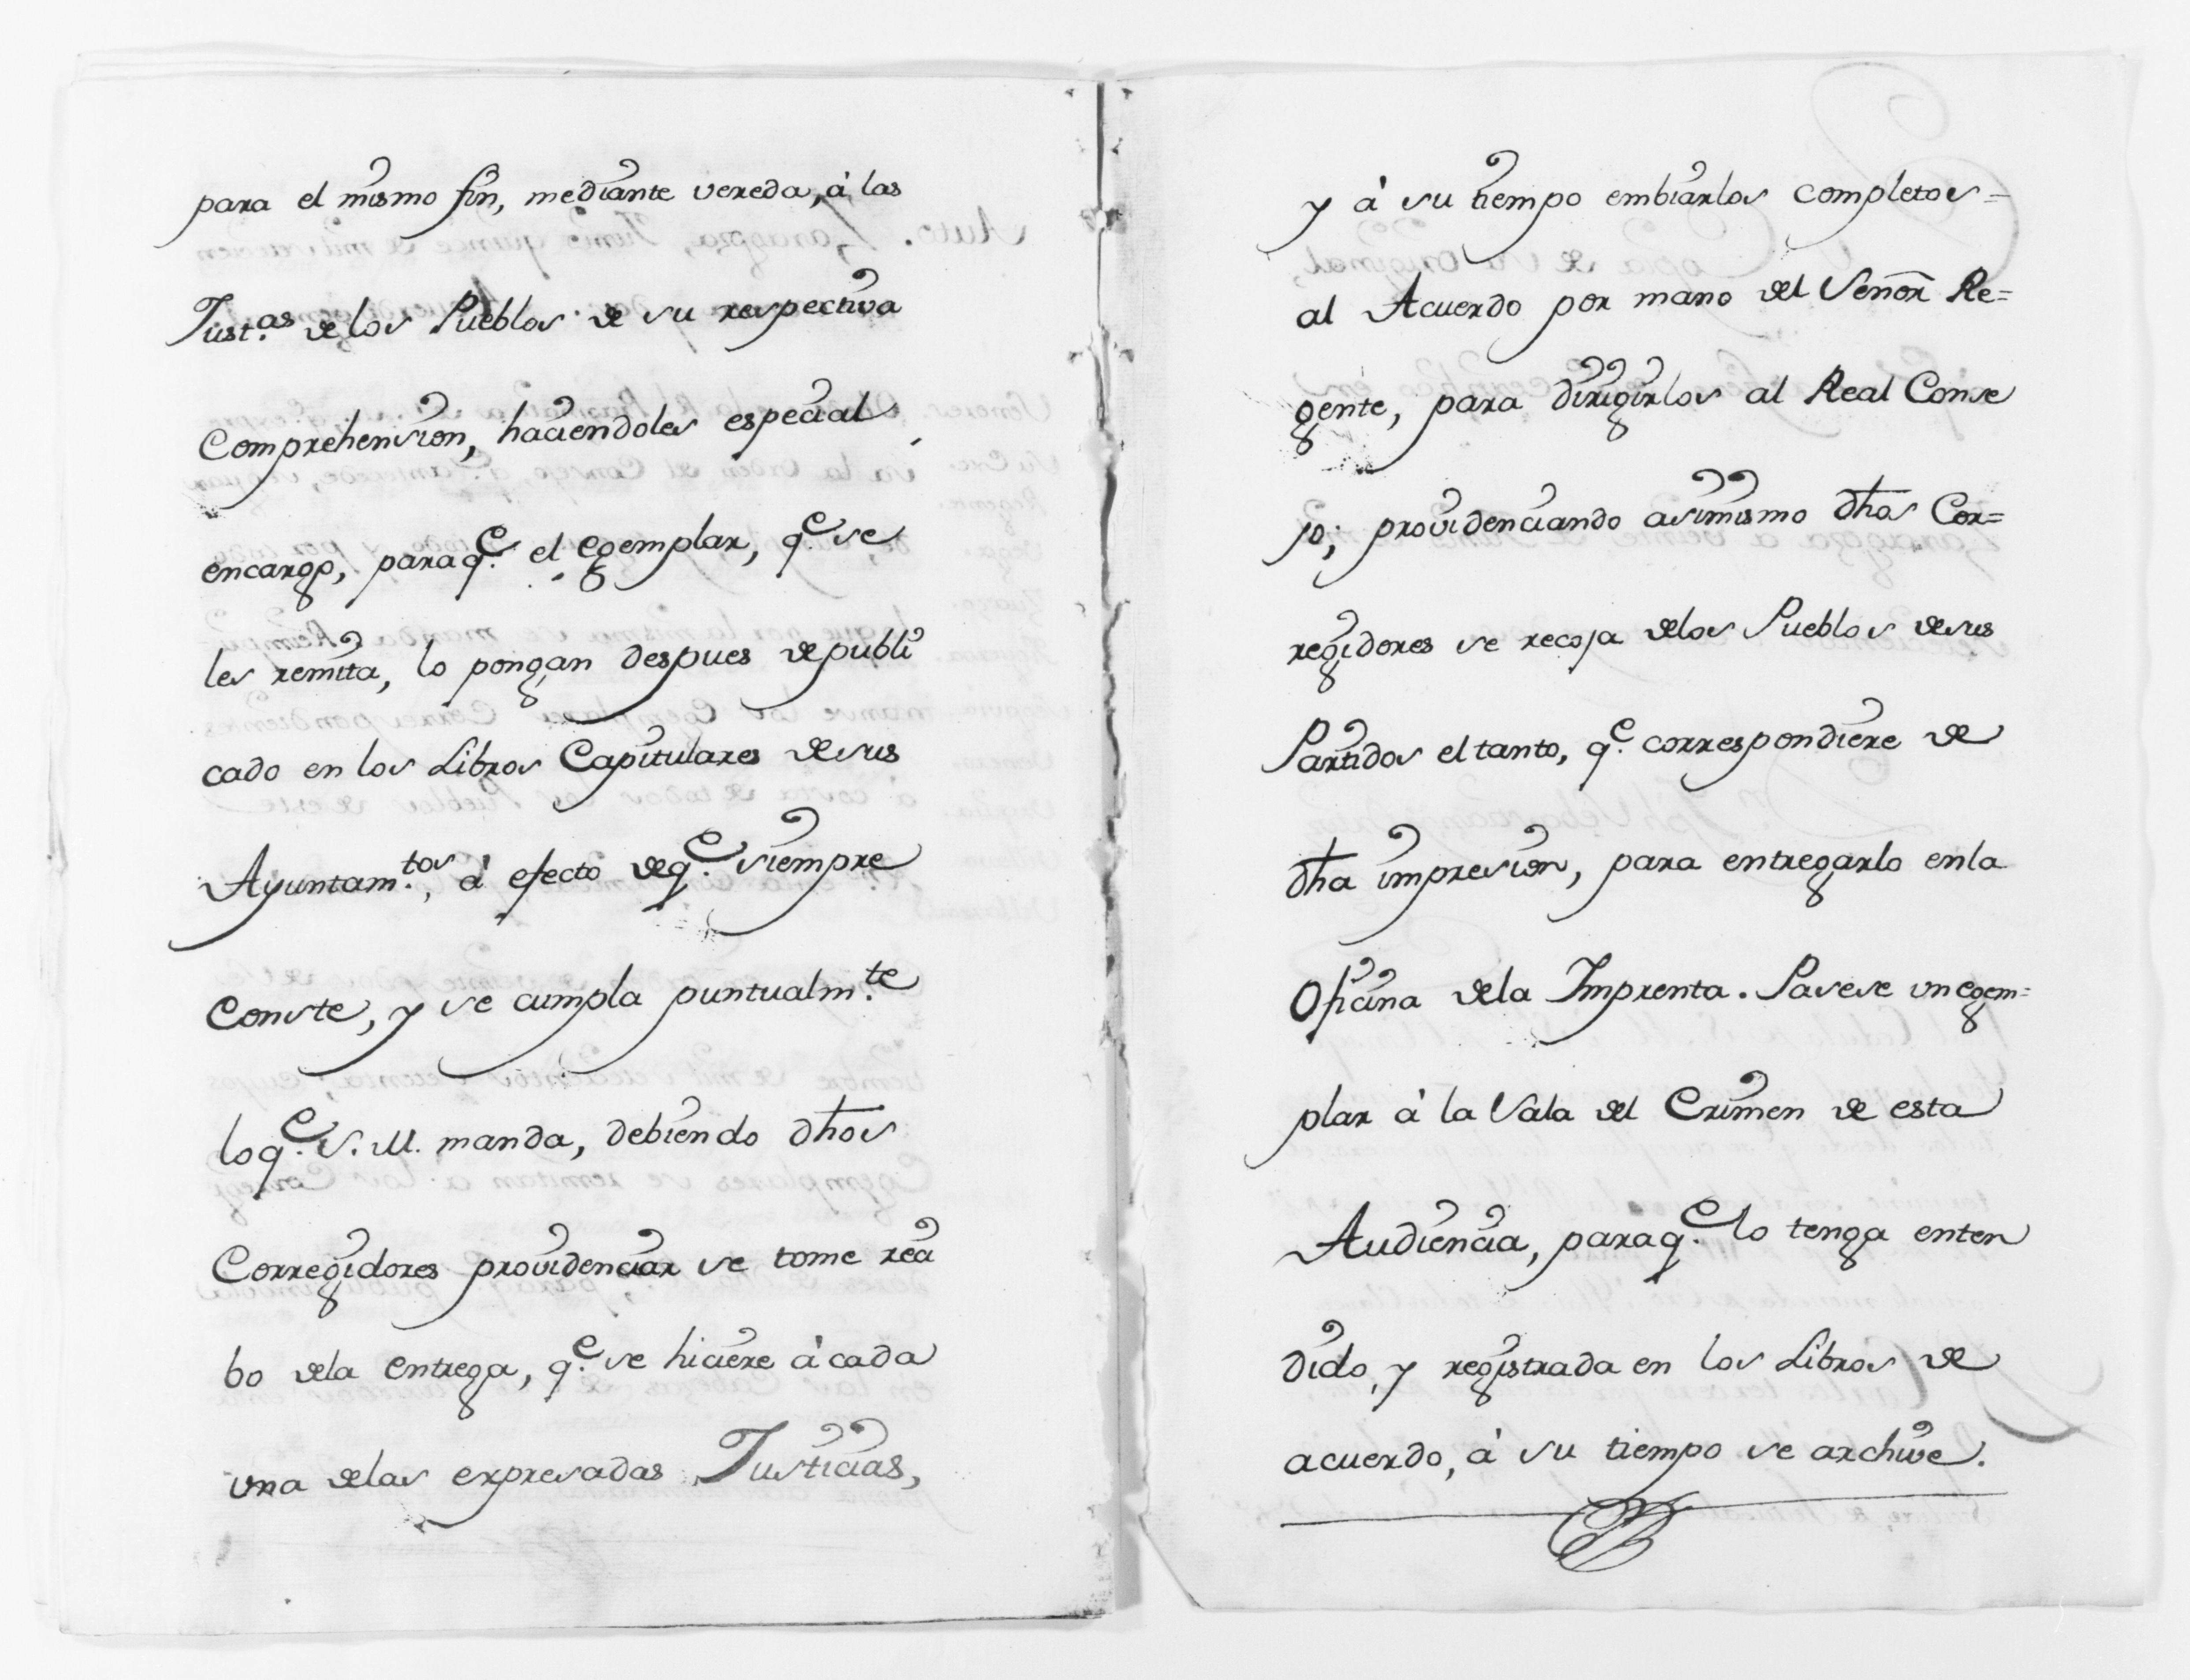 para el mismo fin, mediante vereda, à las
Just.as de los Pueblos de su respectiva
Comprehension, haciendoles especial
encargo, paraq.e el egemplar, q.e se
les remita, lo pongan despues de publi
cado en los Libros Capitulares de sus
Ayuntam.tos, à efecto deq.e siempre
Conste, y se cumpla puntualm.te
loq.e S. M. manda, debiendo dhos
Corregidores providenciar se tome reci
bo dela entrega, q.e se hiciere à cada
una delas expresadas Justicias,
y à su tiempo embiarlos completos=
al Acuerdo por mano del Señor Re=
gente, para dirigirlos al Real Conse
jo; providenciando asimismo dhos Cor=
regidores se recoja delos Pueblos desus
Partidos el tanto, q.e correspondiere de
dha impresion, para entregarlo enla
Oficina dela Imprenta. Pasese un egem=
plar à la Sala del Crimen de esta
Audiencia, paraq.e lo tenga enten
dido, y registrada en los Libros de
acuerdo, à su tiempo se archive.